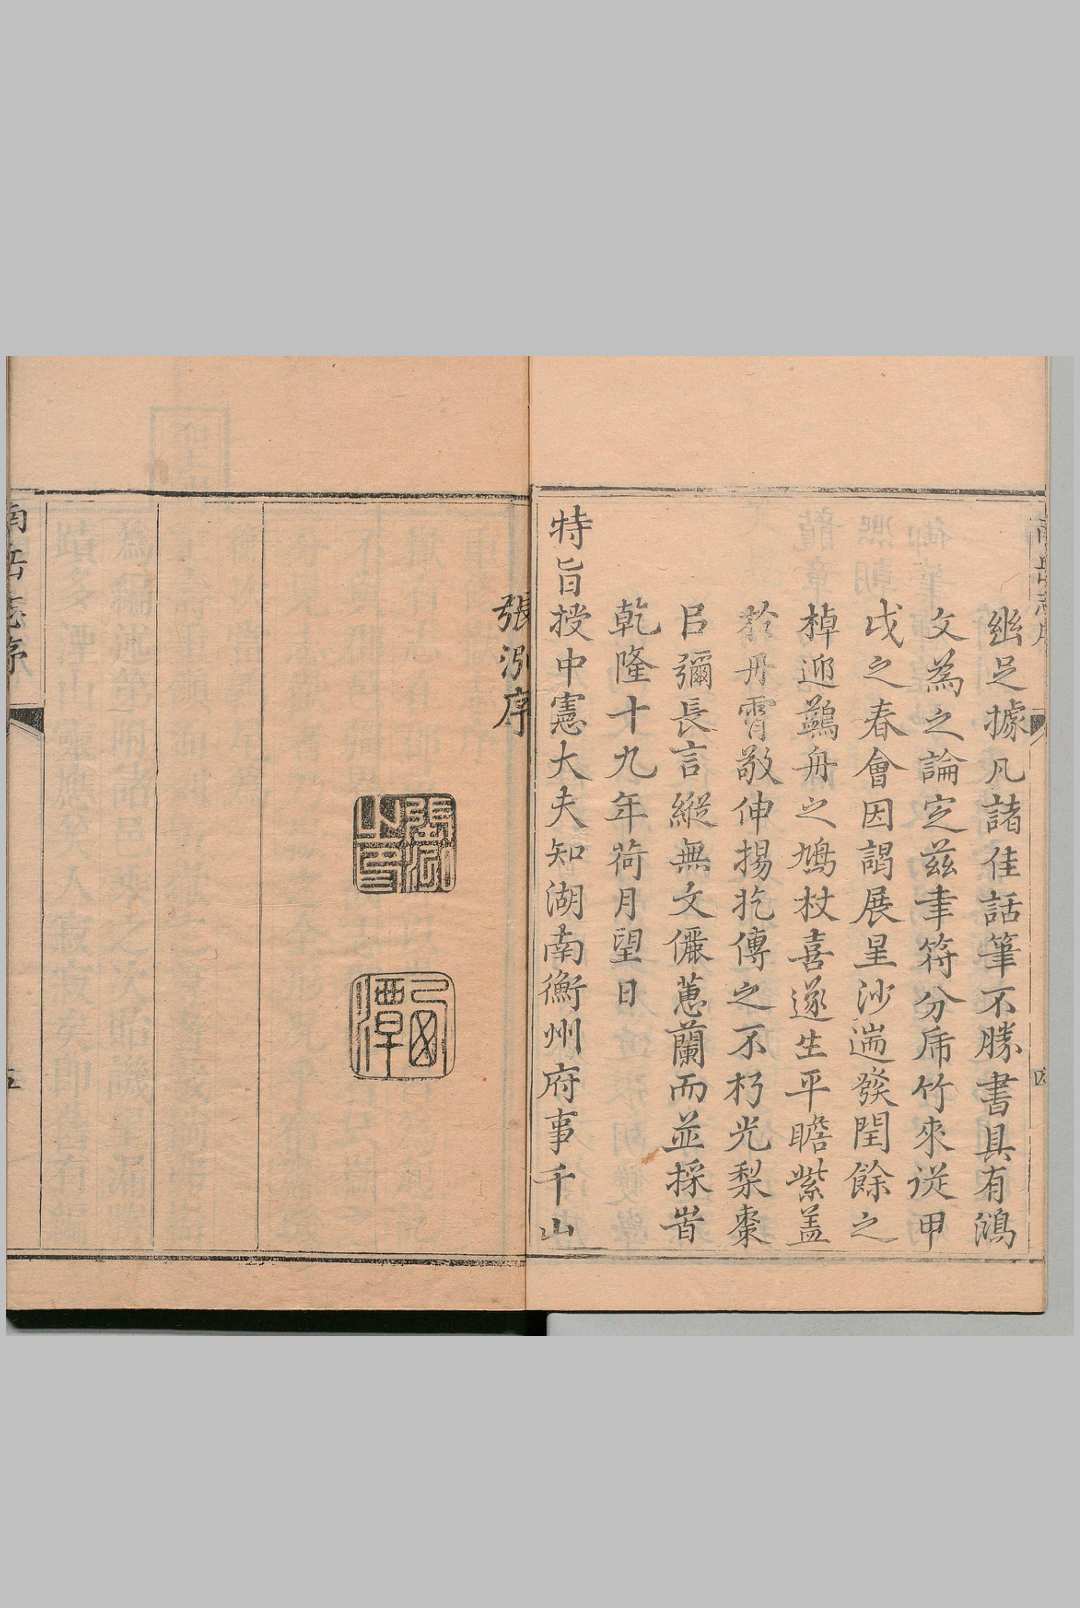 幽足據凡諸佳話筆不勝書具有鴻
文為之論定茲聿符分虎竹來従甲
戌之春會因謁展呈沙遄發閏餘之
棹迎鷁舟之鳩杖喜遂生平瞻紫盖
於丹霄敬伸揚扢傳之不朽光梨棗
㠯彌長言縱無文儷蕙蘭而並採旹
乾隆十九年荷月望日
特旨授中憲大夫知湖南衡州府事千山
張泓序
南岳志序
五